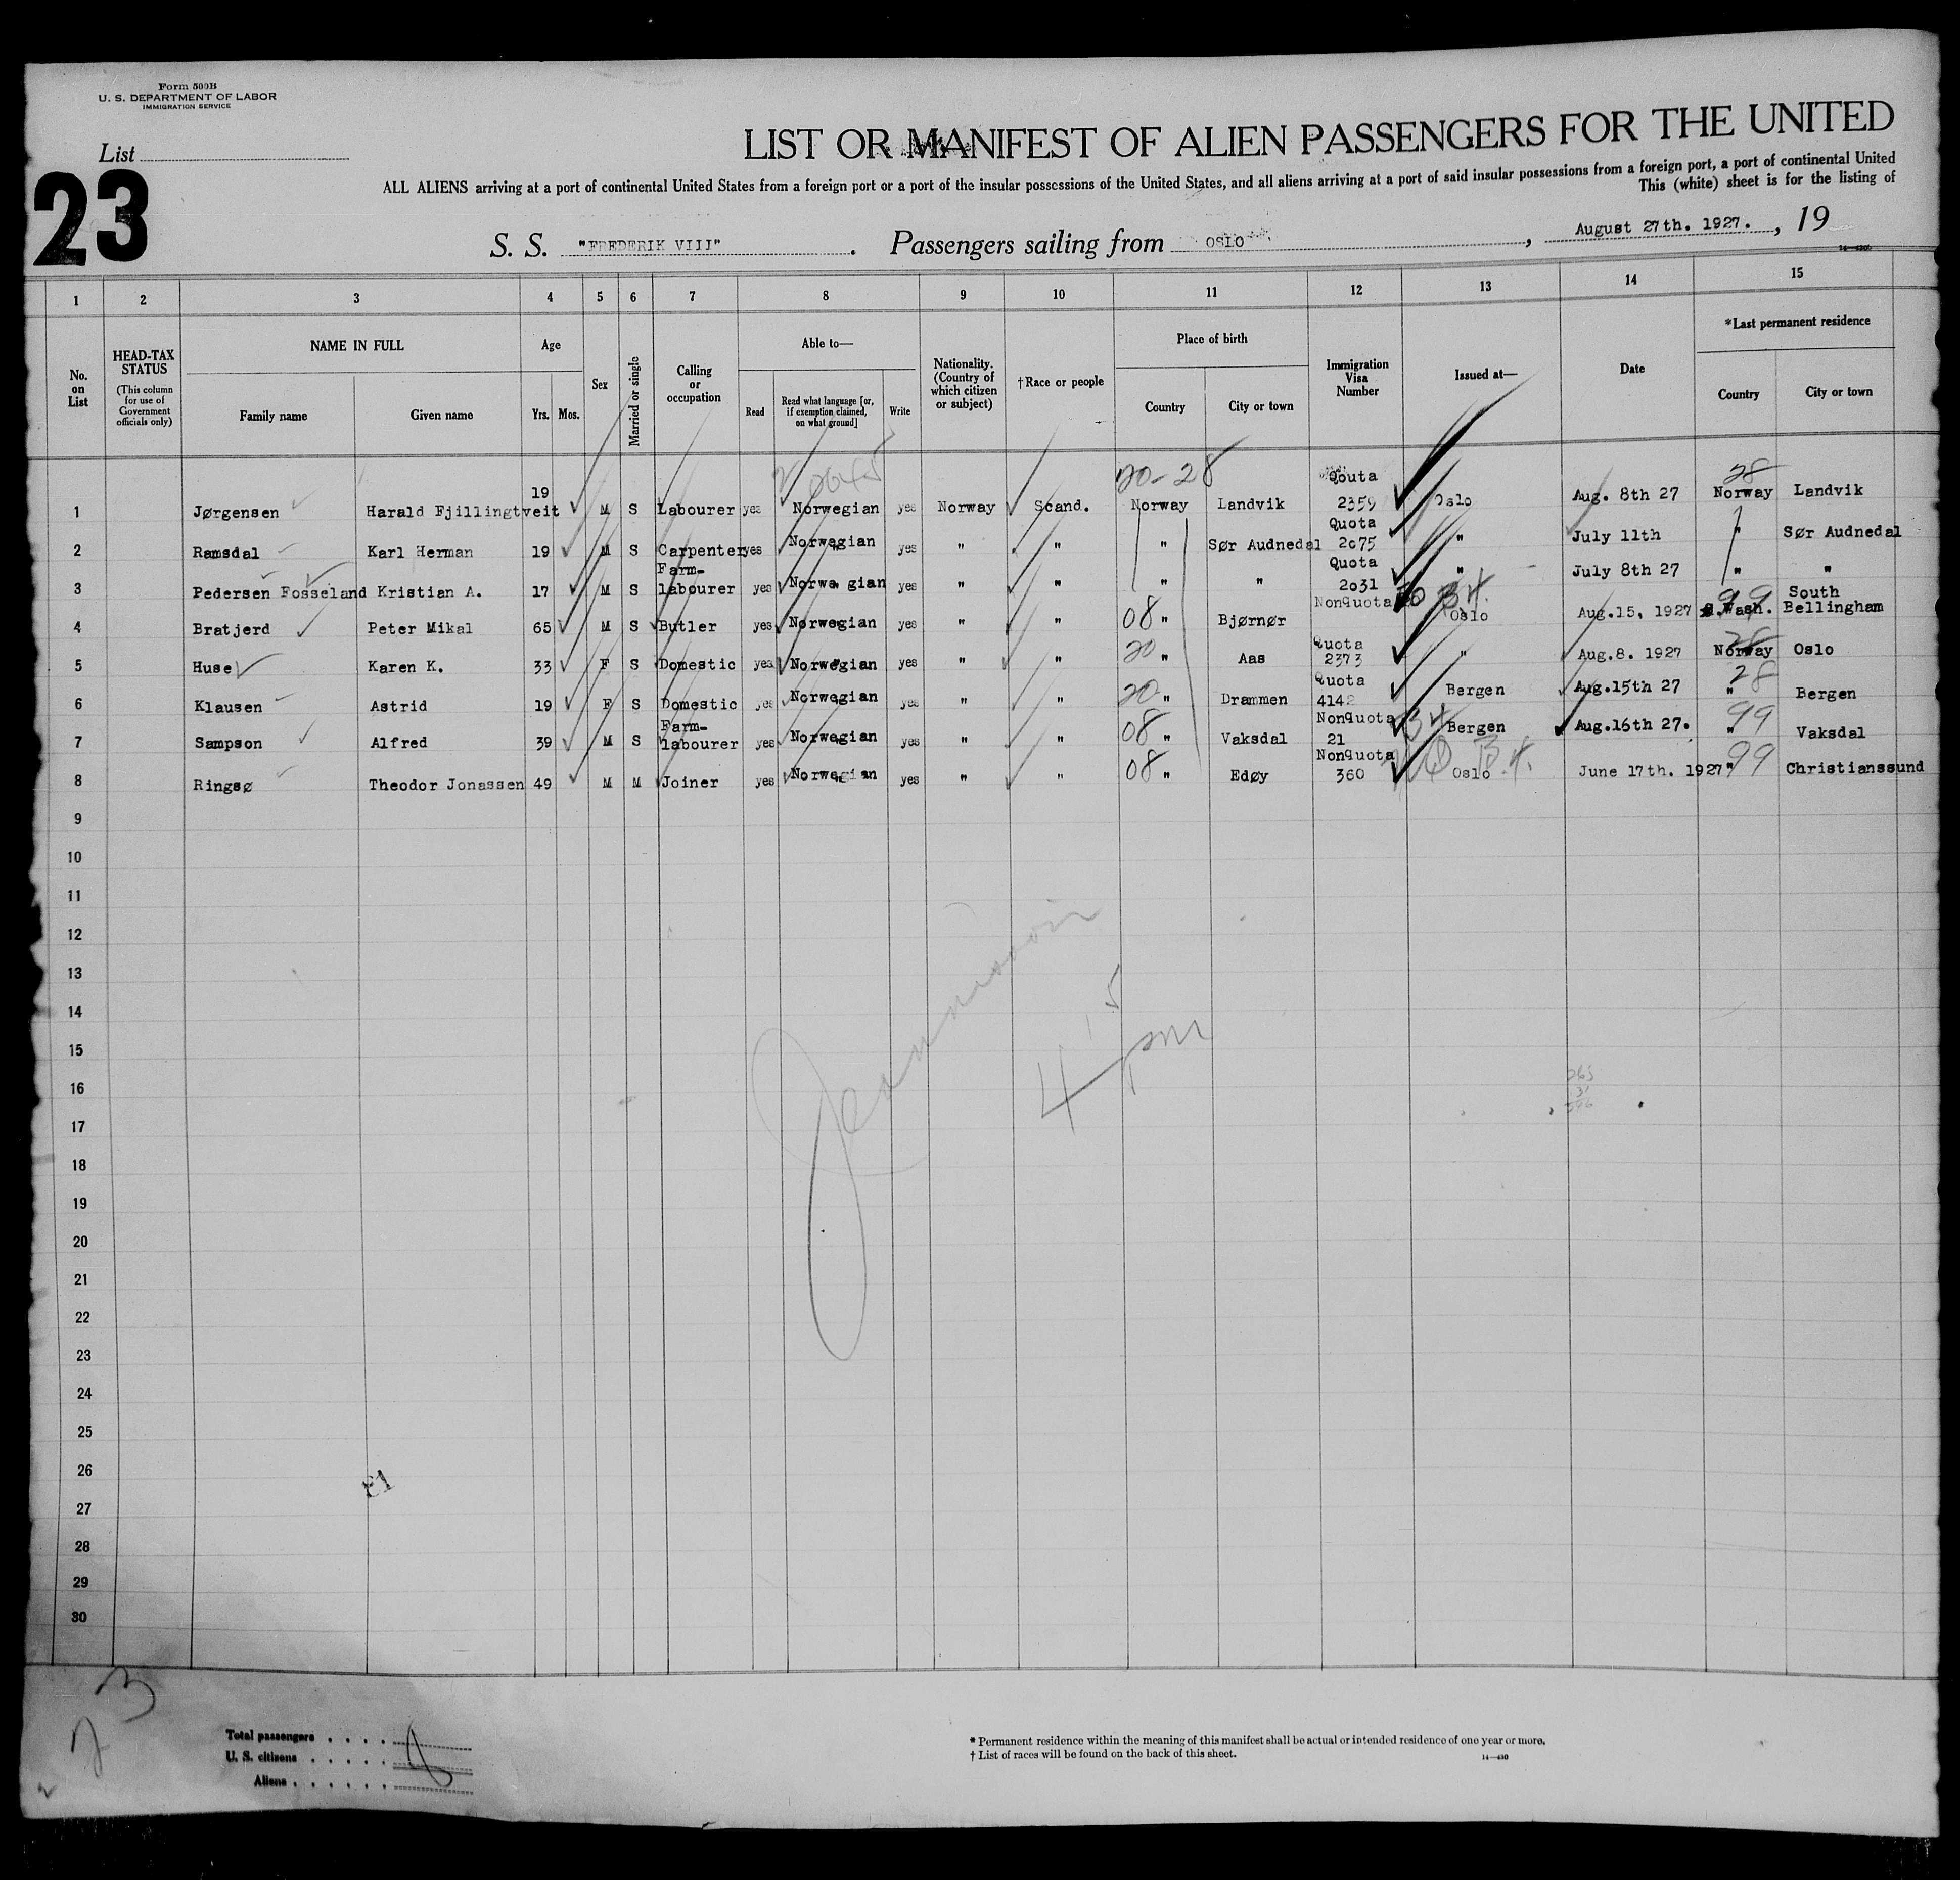 Form 500B
U. S. DEPARTMENT OF LABOR
IMMIGRATION SERVICE
List
23
LIST OR MANIFEST OF ALIEN PASSENGERS FOR THE UNITED
ALL ALIENS arriving at a port of continental United States from a foreign port or a port of the insular possessions of the United States, and all aliens arriving at a port of said insular possessions from a foreign port, a port of continental United
This (white) sheet is for the listing of
S. S. "FREDERIK VIII". Passengers sailing from OSLO, August 27th. 1927., 19
1 2 3 4 5 6 7 8 9 10 11 12 13 14 15
No. on List
HEAD-TAX STATUS (This column for use of Government officials only)
NAME IN FULL
Family name Given name
Age
Yrs. Mos.
Sex
Married or single
Calling or occupation
Able to—
Read Read what language [or, if exemption claimed, on what ground] Write
Nationality. (Country of which citizen or subject)
†Race or people
Place of birth
Country City or town
Immigration Visa Number
Issued at—
Date
*Last permanent residence
Country City or town
20-28 28
1 Jørgensen Harald Fjillingtveit 19 M S Labourer yes Norwegian yes Norway Scand. Norway Landvik Qouta 2359 Oslo Aug. 8th 27 Norway Landvik
2 Ramsdal Karl Herman 19 M S Carpenter yes Norwegian yes " " " Sør Audnedal Quota 2075 " July 11th " Sør Audnedal
3 Pedersen Fosseland Kristian A. 17 M S Farm-labourer yes Norwegian yes " " " " Quota 2031 " July 8th 27 " "
4 Bratjerd Peter Mikal 65 M S Butler yes Norwegian yes " " 08 " Bjørnør NonQuota Oslo Aug.15, 1927 99 Wash. South Bellingham
5 Huse Karen K. 33 F S Domestic yes Norwegian yes " " 20 " Aas Quota 2373 " Aug.8. 1927 28 Norway Oslo
6 Klausen Astrid 19 F S Domestic yes Norwegian yes " " 20 " Drammen Quota 4142 Bergen Aug.15th 27 28 " Bergen
7 Sampson Alfred 39 M S Farm-labourer yes Norwegian yes " " 08 " Vaksdal NonQuota 21 Bergen Aug.16th 27. 99 " Vaksdal
8 Ringsø Theodor Jonassen 49 M M Joiner yes Norwegian yes " " 08 " Edøy NonQuota 360 Oslo June 17th. 1927 99 " Christianssund
9
10
11
12
13
14
15
16
17
18
19
20
21
22
23
24
25
26
27
28
29
30
23
Total passengers
U. S. citizens
Aliens
* Permanent residence within the meaning of this manifest shall be actual or intended residence of one year or more.
† List of races will be found on the back of this sheet.
14—430